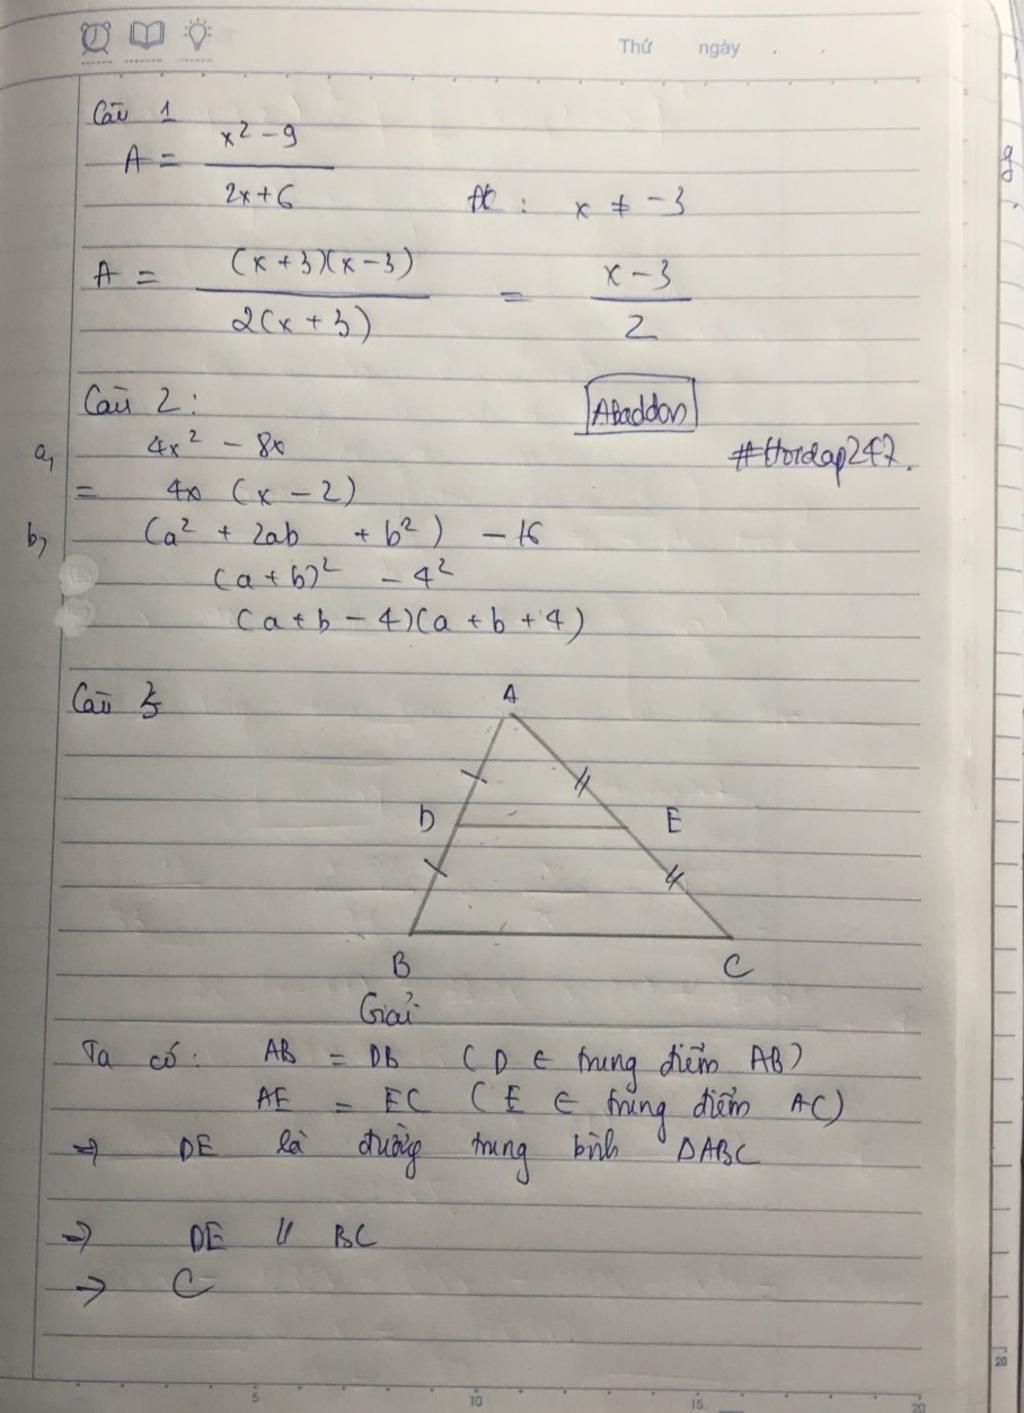 Thứ ngày . .
Câu 1
A = x² - 9 / 2x + 6 ĐK : x ≠ -3
A = (x + 3)(x - 3) / 2(x + 3) = x - 3 / 2
Câu 2 :
Abaddon
#Hoidap247.
a, 4x² - 8x
= 4x (x - 2)
b, (a² + 2ab + b²) - 16
(a + b)² - 4²
(a + b - 4)(a + b + 4)
Câu 3
A
D E
B C
Giải
Ta có : AB = DB (D ∈ trung điểm AB)
AE = EC (E ∈ trung điểm AC)
⇒ DE là đường trung bình ΔABC
⇒ DE // BC
→ C
5 10 15 20
20